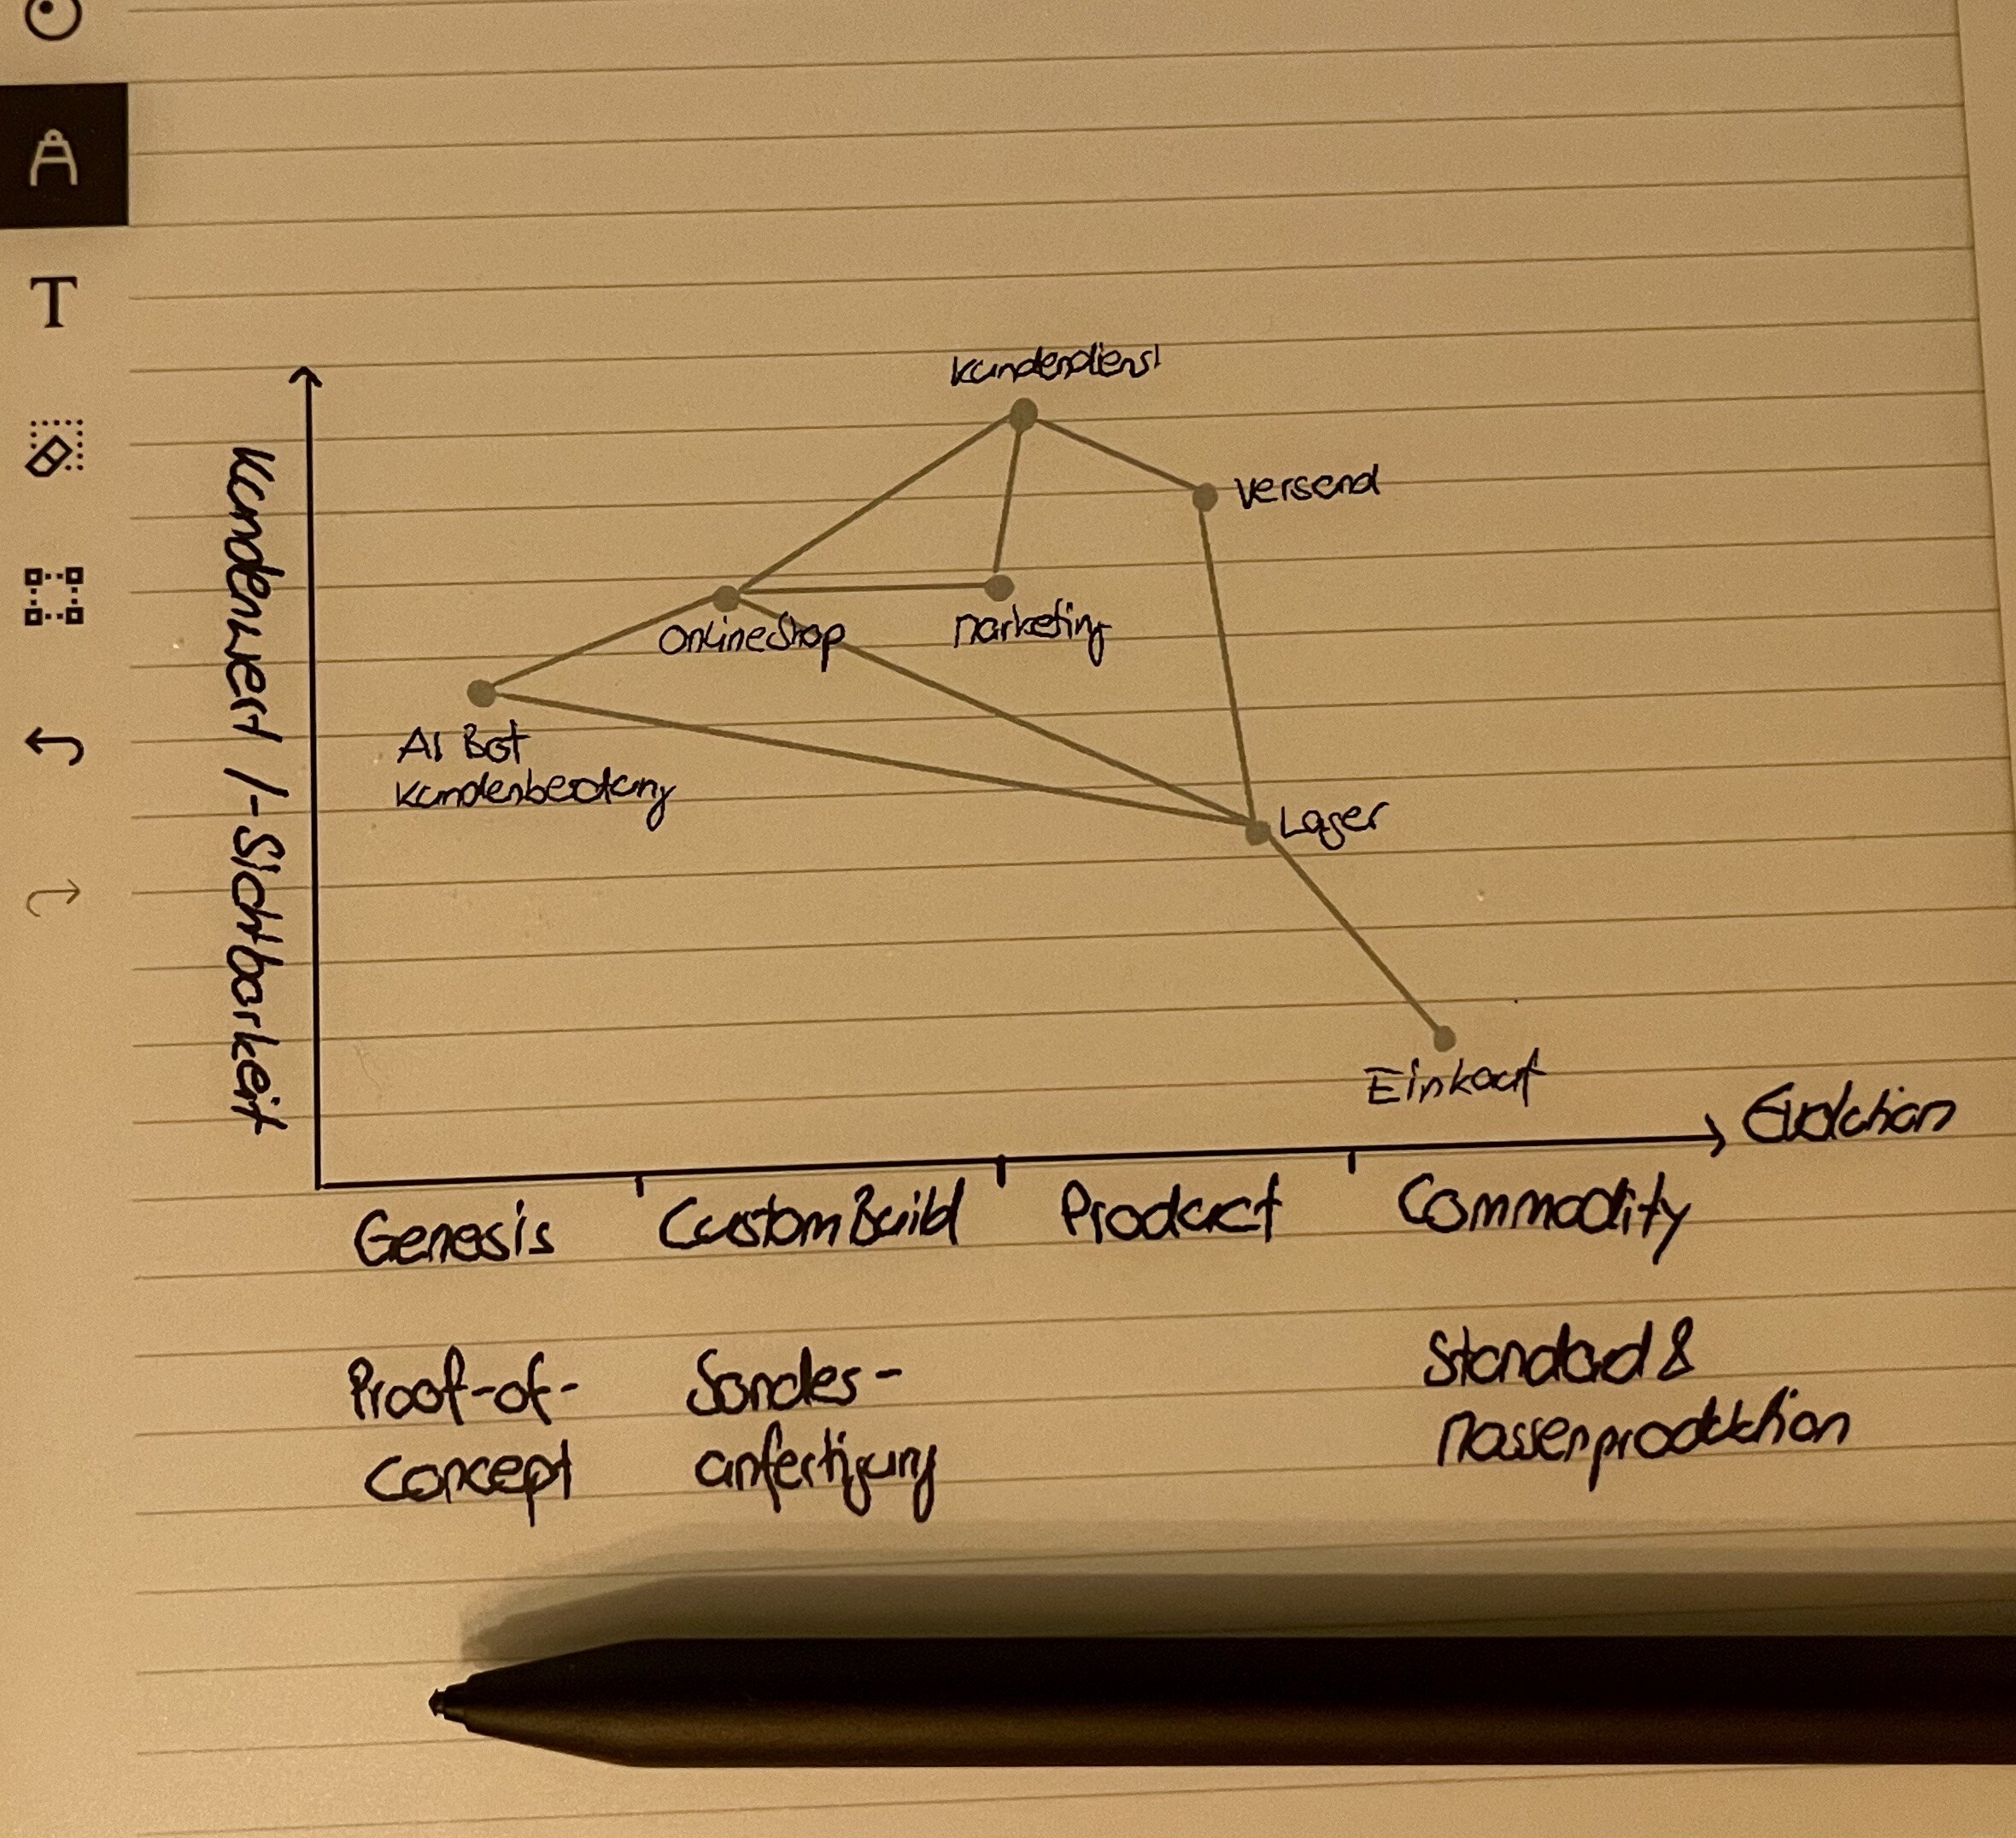 T
Kundendienst
Versand
OnlineShop
Marketing
AI Bot
Kundenberatung
Lager
Einkauf
Kundenwert /-Sichtbarkeit
Evolution
Genesis
Custom Build
Product
Commodity
Proof-of-
Concept
Sonder-
anfertigung
Standard &
Massenproduktion